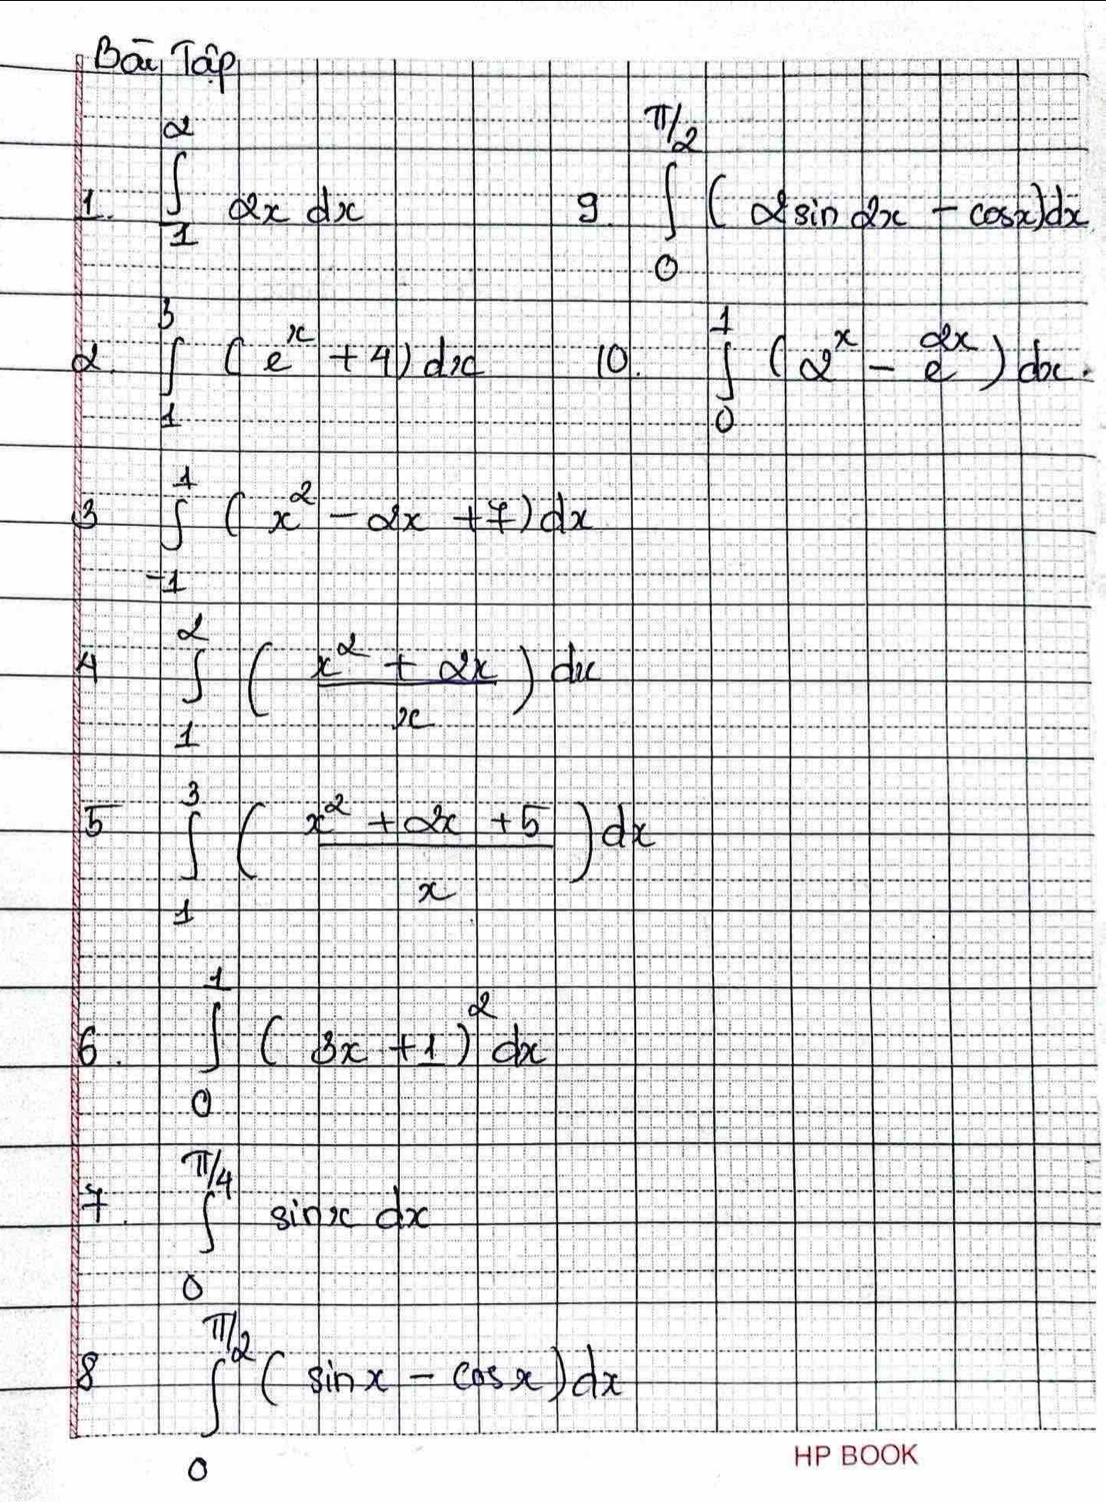 Bài Tập
1. ∫₁² 2x dx
9. ∫₀^{π/2} (2sin 2x - cosx)dx
2. ∫₁³ (eˣ + 4) dx
10. ∫₀¹ (2ˣ - e²ˣ) dx.
3 ∫₋₁¹ (x² - 2x + 7) dx
4 ∫₁² ( (x² + 2x)/x ) dx
5 ∫₁³ ( (x² + 2x + 5)/x ) dx
6. ∫₀¹ (3x + 1)² dx
7. ∫₀^{π/4} sinx dx
8 ∫₀^{π/2} (sinx - cosx) dx
HP BOOK